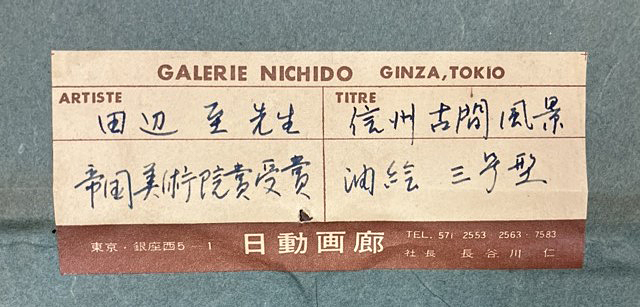 GALERIE NICHIDO GINZA, TOKIO
ARTISTE
田辺 至 先生
TITRE
信州古間風景
帝国美術院賞受賞
油絵 三号型
東京・銀座西5－1
日動画廊
TEL. 571 2553・2563・7583
社長 長谷川 仁